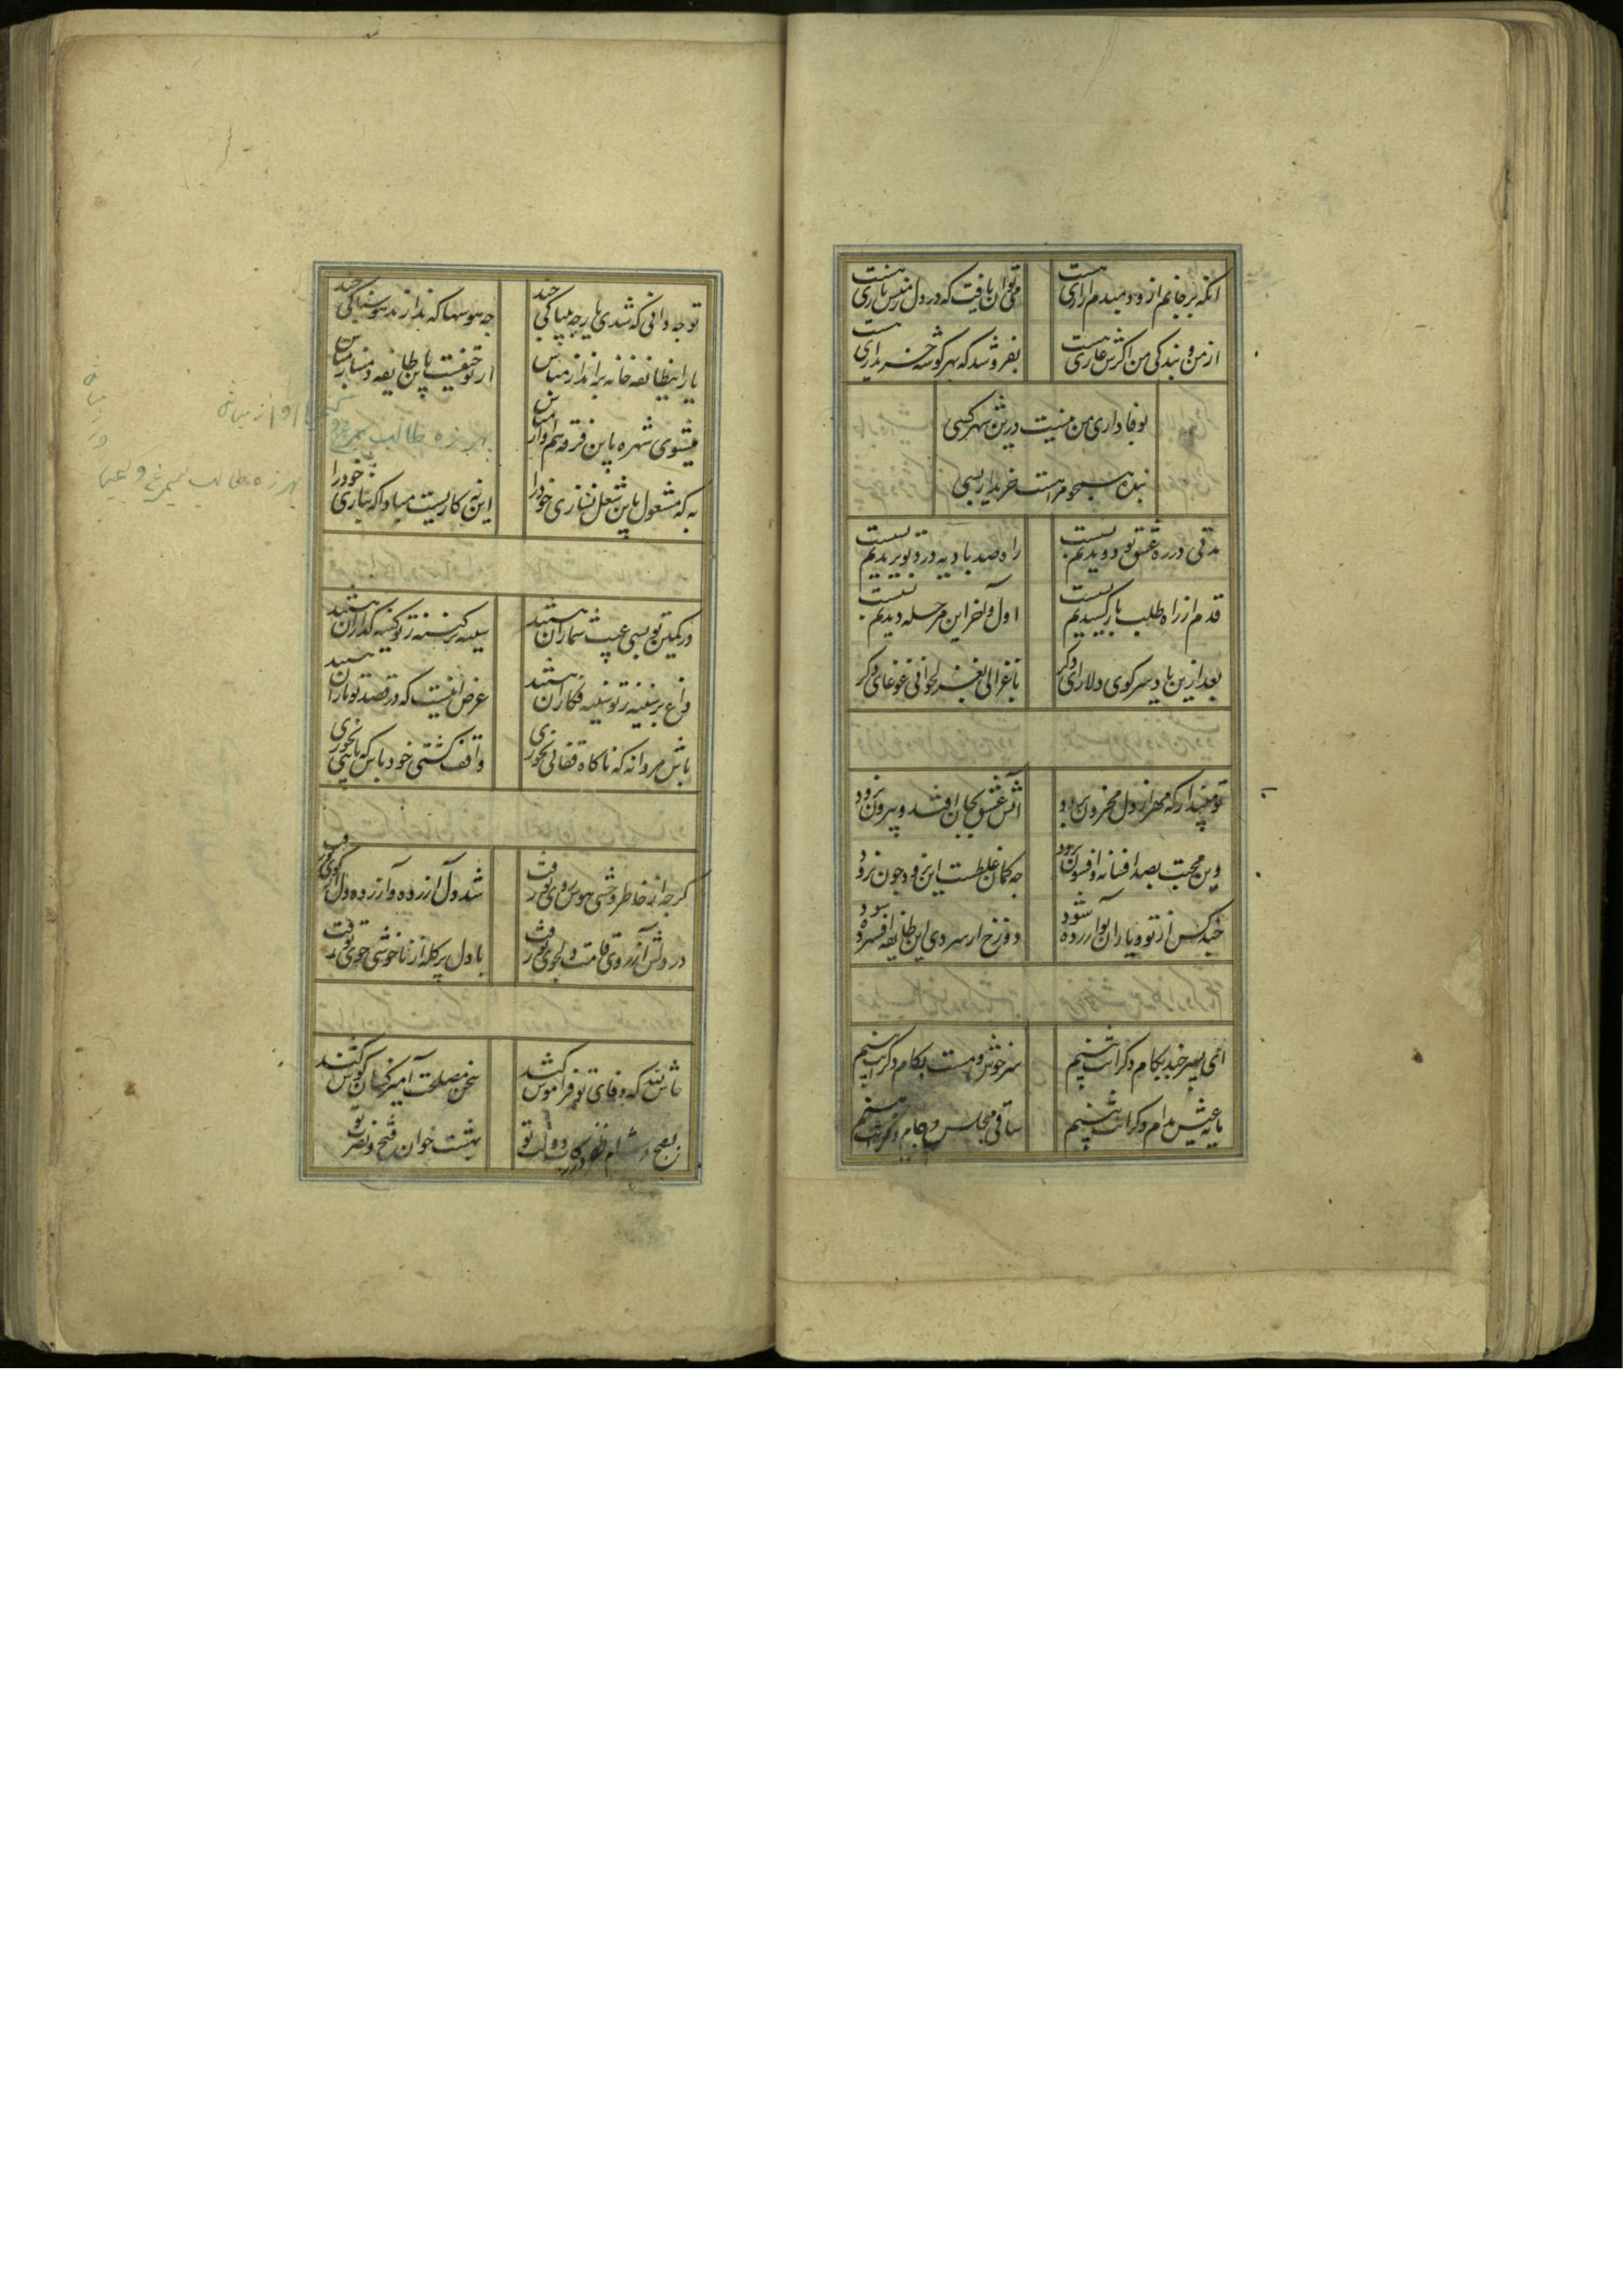 انکه بر جانم ازو دمبدم ازاری هست
می توان یافت که در دل زمنش باری هست
از من و بندکی من اکرش عاری هست
بفروشد که بهر کوشه خریداری هست
بوفاداری من نیست درین شهر کسی
بنده همچو مرا هست خریدار بسی
مدتی در ره عشق تو دویدیم بسست
راه صد بادیه درد بریدیم بسست
قدم از راه طلب باز کشیدیم بسست
اول و آخر این مرحله دیدیم بسست
بعد ازین ما و سر کوی دلارای دکر
با غزالی بغزلخوانی و غوغای دکر
تو مپندار که مهر از دل محزون نرود
آتش عشق بجان افتد و بیرون نرود
وین محبت بصد افسانه و افسون نرود
چه کمان غلطست این برود چون نرود
چند کس از تو و یاران تو آزرده شود
دوزخ از سردی این طایفه افسرده شود
ای پسر چند بکام دکرانت بینم
سرخوش و مست بکام دکرانت بینم
مایه عیش مدام دکرانت بینم
ساقی مجلس و جام دکرانت بینم
تو چه دانی که شدی یار چه بیباکی چند
چه هوسها که ندارند هوسناکی چند
یار این طایفه خانه برانداز مباش
از تو حیفست باین طایفه دمساز مباش
میشوی شهره باین فرقه هم آواز مباش
بهرزه طالب سیمرغ و کیمیا
به که مشغول باین شغل نسازی خود را
این نه کاریست مبادا که ببازی خود را
در کمین تو بسی عیب شماران هستند
سینه پر کینه ز تو کینه کذاران هستند
داغ بر سینه ز تو سینه فکاران هستند
غرض اینست که در قصد تو یاران هستند
باش مردانه که ناکاه قفائی نخوری
واقف کشتی خود باش که پائی نخوری
کرچه از خاطر وحشی هوس روی تو رفت
وز دلش آرزوی قامت دلجوی تو رفت
شد دل آزرده و آزرده دل از کوی تو رفت
با دل پر کله از ناخوشی خوی تو رفت
حاش لله که وفای تو فراموش کند
سخن مصلحت آمیز کسان کوش کند